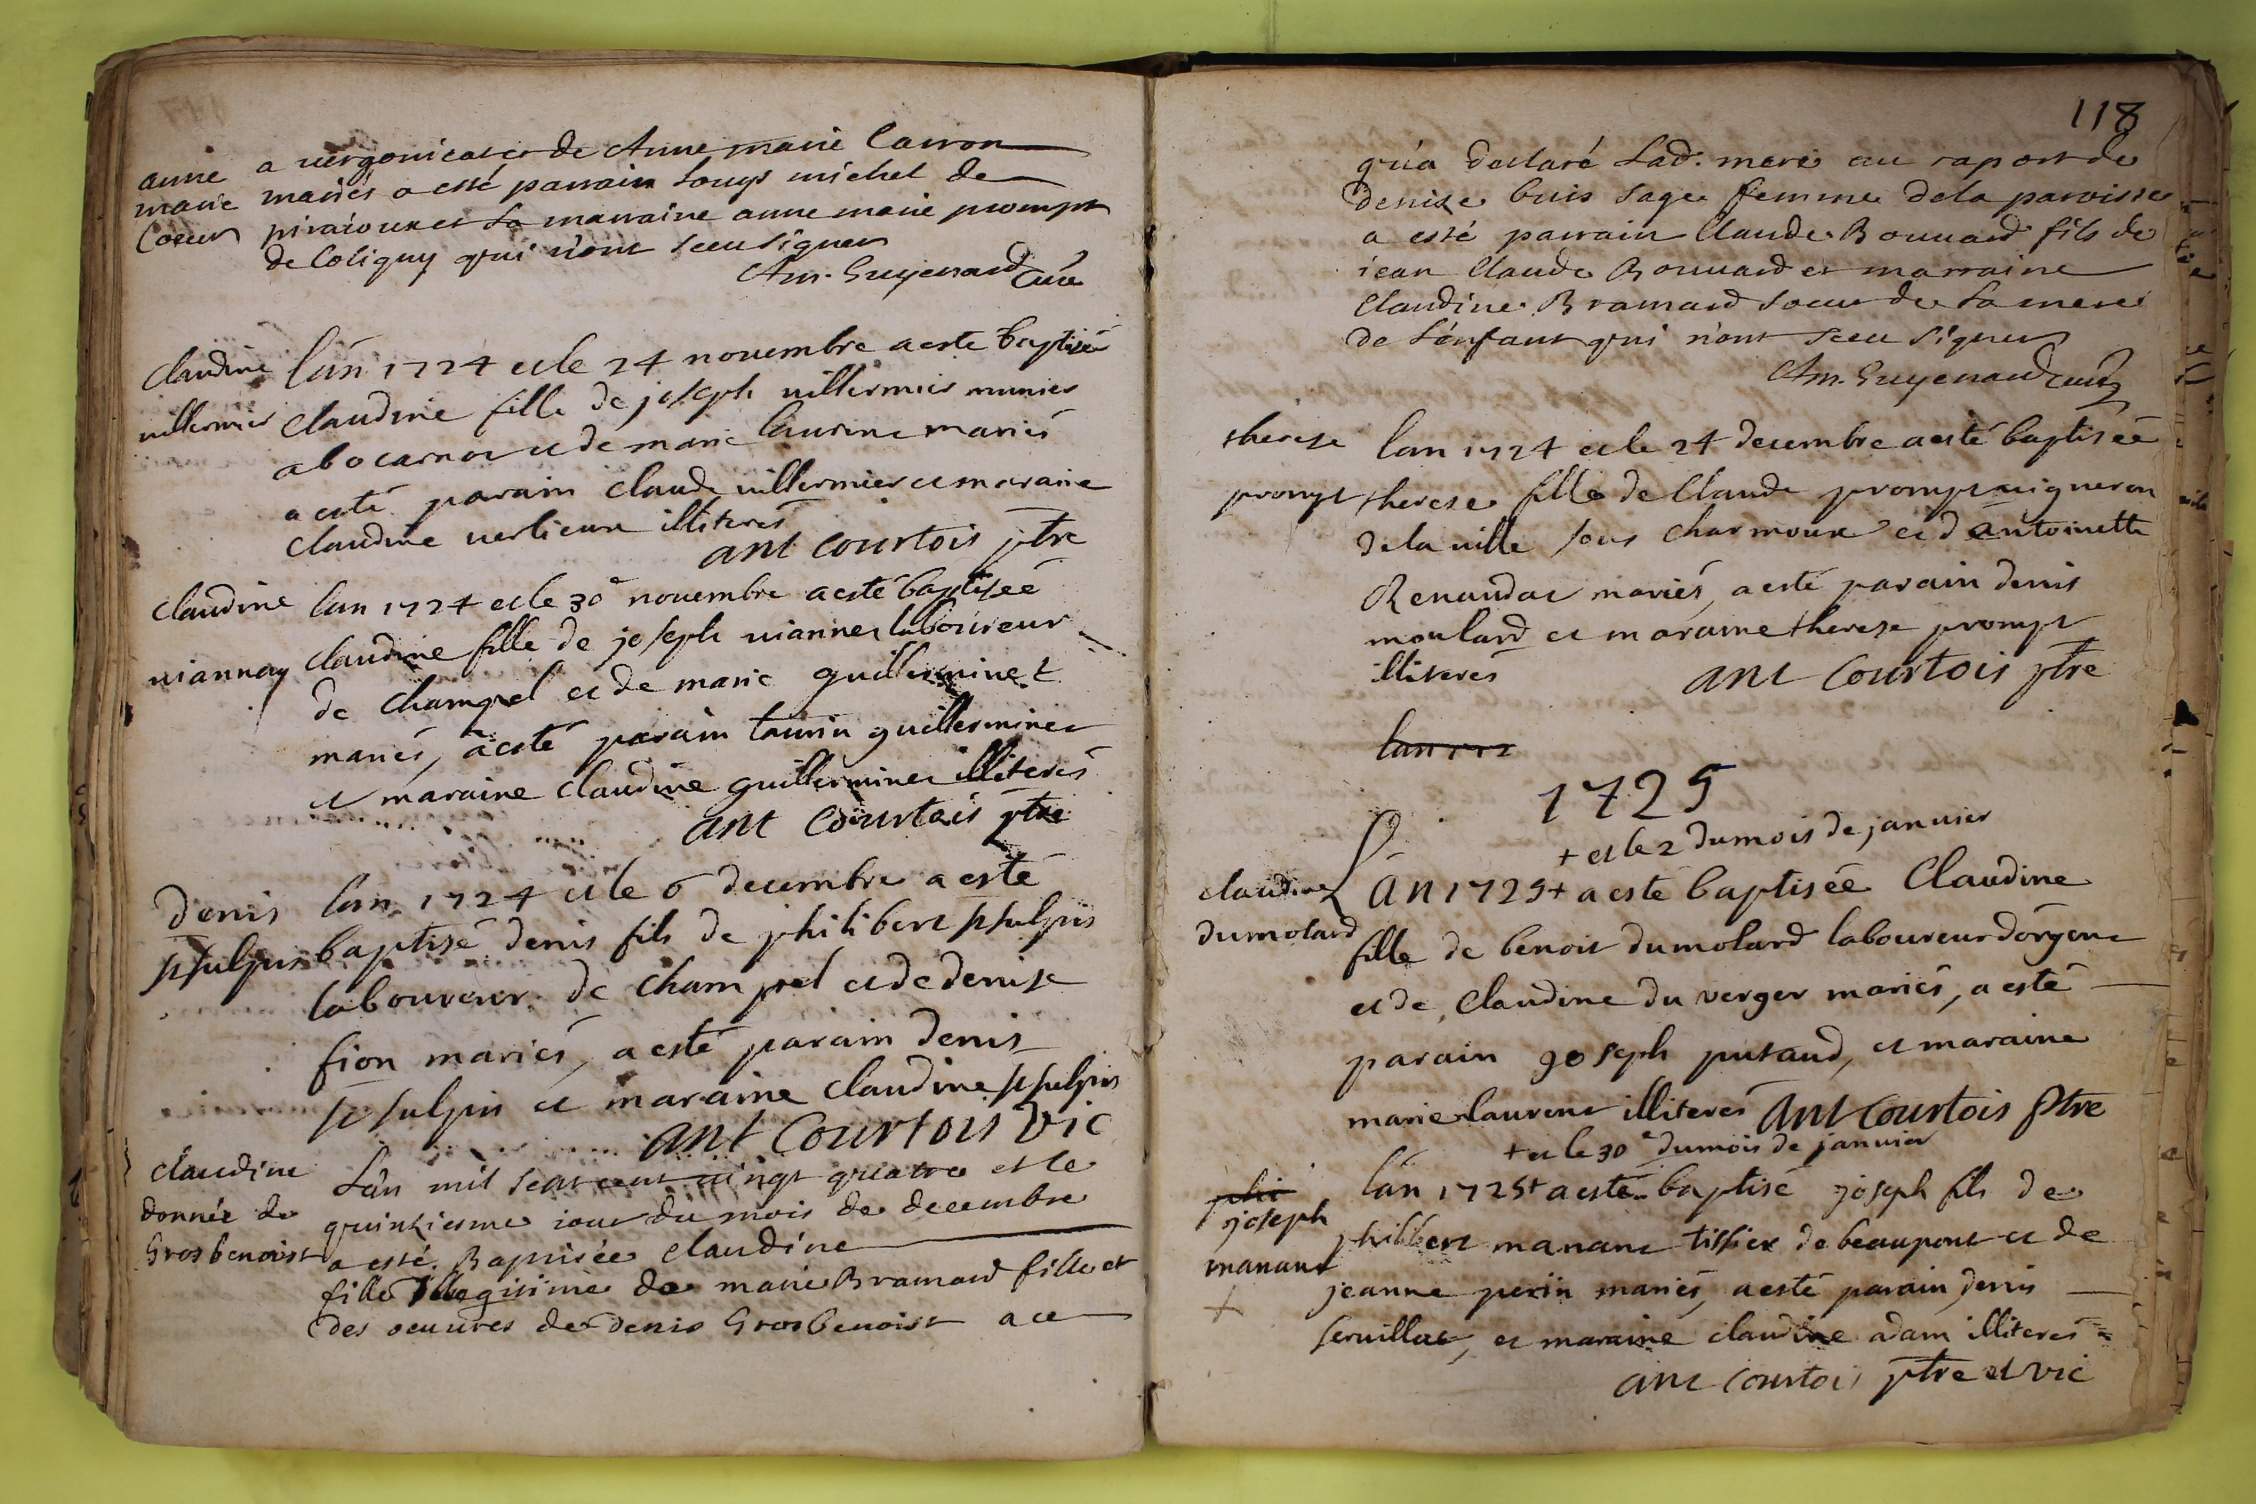 anne marie Coeur
a vergonicat et de Anne marie Carron
mariés a esté parrain Louys michel de
piraioux et La marraine anne marie prompt
de Coligny qui n'ont sceu signer
Am. Guyenard Curé
claudine villermier
lán 1724 et le 24 novembre a esté baptisée
claudine fille de joseph villermier munier
a bocarnoz et de marie laurent mariés
a esté parain claude villermier et maraine
claudine verlieux illiterés
ant courtois ptre
claudine viannay
lan 1724 et le 30 novembre a esté baptiseé
claudine fille de joseph viannei laboureur
de champel et de marie guillerminet
mariés, a esté parain taurin guillerminet
et maraine claudine guilleminet illiterés
ant courtois ptre
denis psulpis
lan 1724 et le 6 decembre a esté
baptisé denis fils de philibert psulpis
laboureur de champel et de denise
fion mariés, a esté parain denis
psulpis et maraine claudine psulpis
ant courtois vic
claudine donnée de Grosbenoist
Lán mil sept cent vingt quatre et le
quinziesme iour du mois de decembre
a esté Baptisée claudine
fille Illegitime de marie Bramard fille et
des oeuures de denis Grosbenoist a ce
118
qu'a declaré Lad. mere au raport de
denize buis sage femme de la paroisse
a esté parrain Claude Bouuard fils de
iean Claude Bouuard et marraine
Claudine Bramard soeur de La mere
de L'enfant qui n'ont sceu signer
Am. Guyenard curé
therese prompt
lan 1724 et le 24 decembre a esté baptiseé
therese fille de Claude prompt uigneron
de la uille sous charmoux et d antoinette
Renaudat mariés, a esté parain denis
moulard et maraine therese prompt
illiterés
ant courtois ptre
lan 172
1725
+ et le 2 du mois de januier
claudine dumolard
L án 1725+ a esté baptisée Claudine
fille de benoit dumolard laboureur dórgent
et de Claudine du verger mariés, a esté
parain joseph putaud, et maraine
marie laurent illiterés ant courtois ptre
+ et le 30 e du mois de januier
phi
joseph manant
+
lán 1725+ a esté baptisé joseph fils de
philibert manant tissier de beaupont et de
jeanne perin mariés, a esté parain denis
seruillat, et maraine claudine adam illiterés
ant courtois ptre et vic